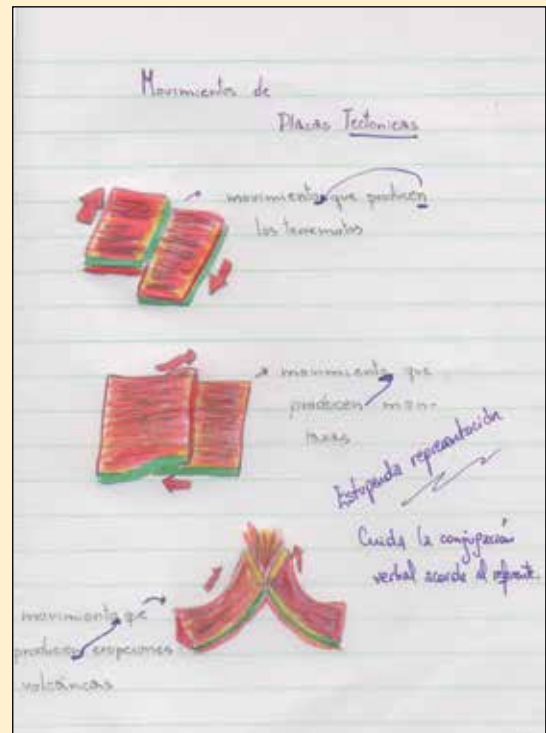 Movimientos de
Placas Tectonicas
movimiento que producen
los terremotos
movimiento que
producen mon-
tañas
Estupenda representación
Cuida la conjugación
verbal acorde al referente.
movimiento que
producen erupciones
volcánicas